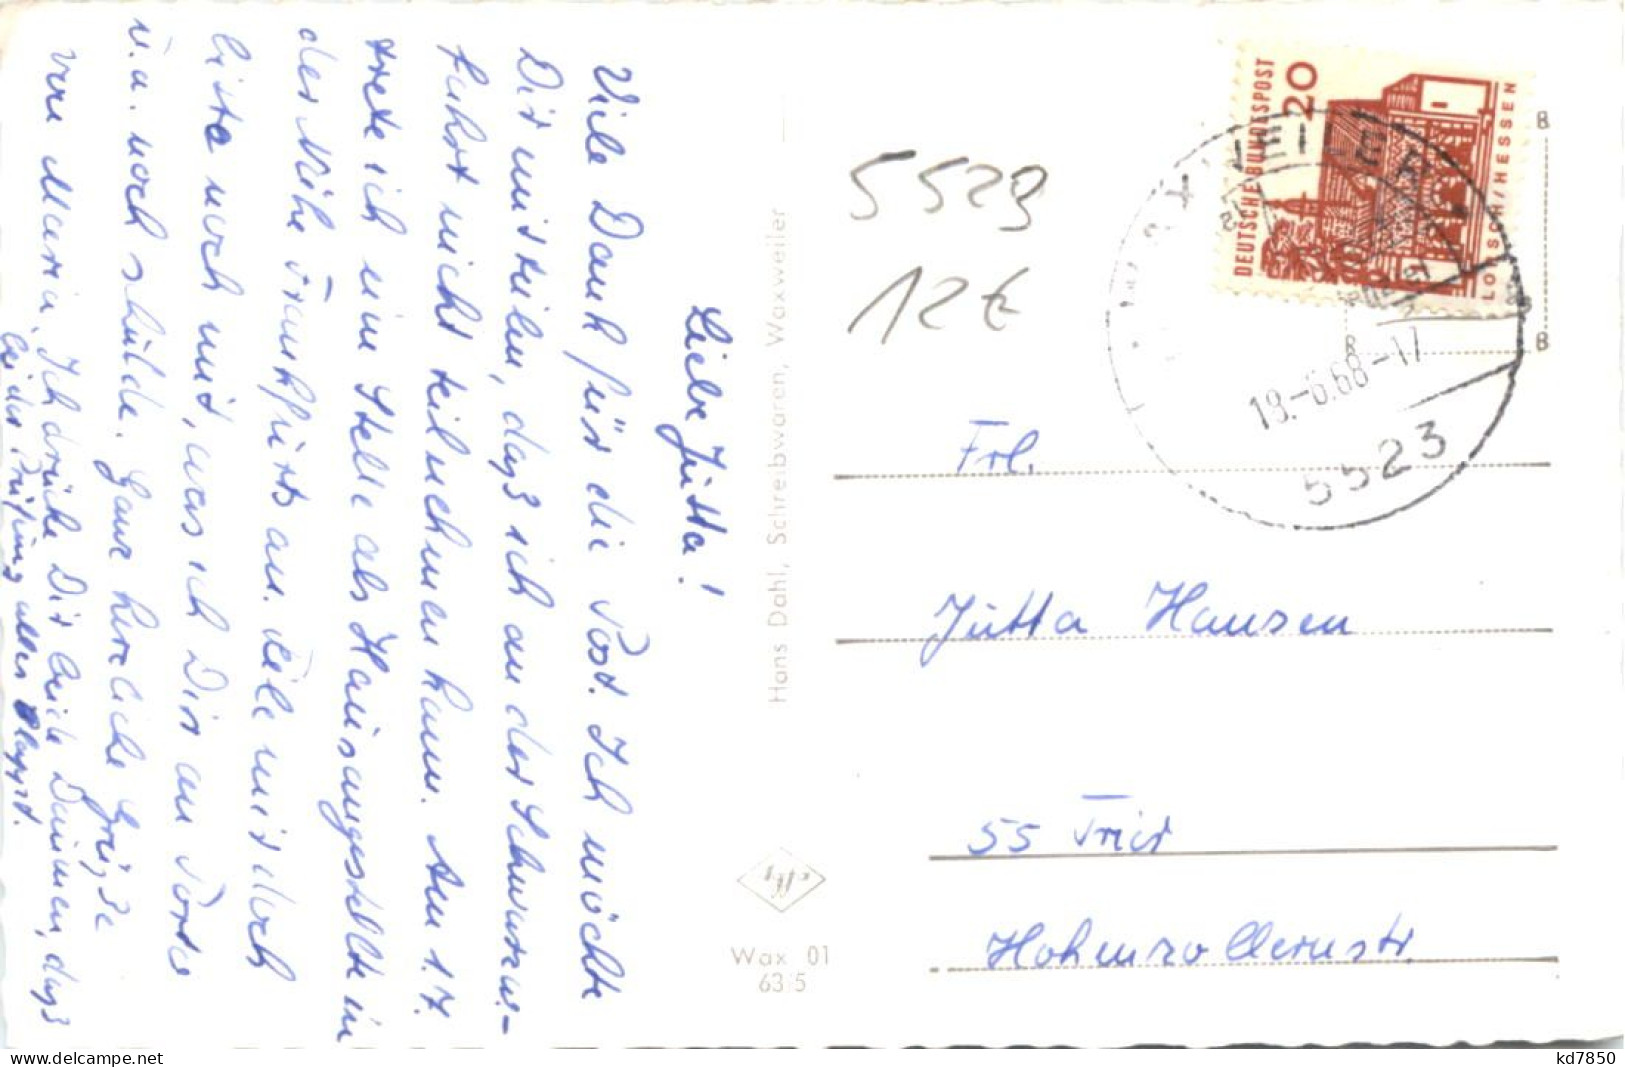 Liebe Jutta!
Viele Dank für die Post. Ich möchte
Dir mitteilen, daß ich an der
fahrt nicht teilnehmen kann. Am 1.7.
trete ich eine Stelle als Hausangestellte in
der Nähe Frankfurts an. Teile mir doch
bitte noch mit, was ich Dir an Porto
u.a. noch schulde. Ganz herzliche Grüße
Maria. Ich drücke Dir beide Daumen, daß
bei der Prüfung alles klappt.
Hans Dahl, Schreibwaren, Waxweiler
Wax 01
63/5
5529
12 €
DEUTSCHE BUNDESPOST
20
LORSCH/HESSEN
WAXWEILER
18.-6.68-17
5523
Frl.
Jutta Hansen
55 Trier
Hohenzollernstr.
delcampe.net
kd7850